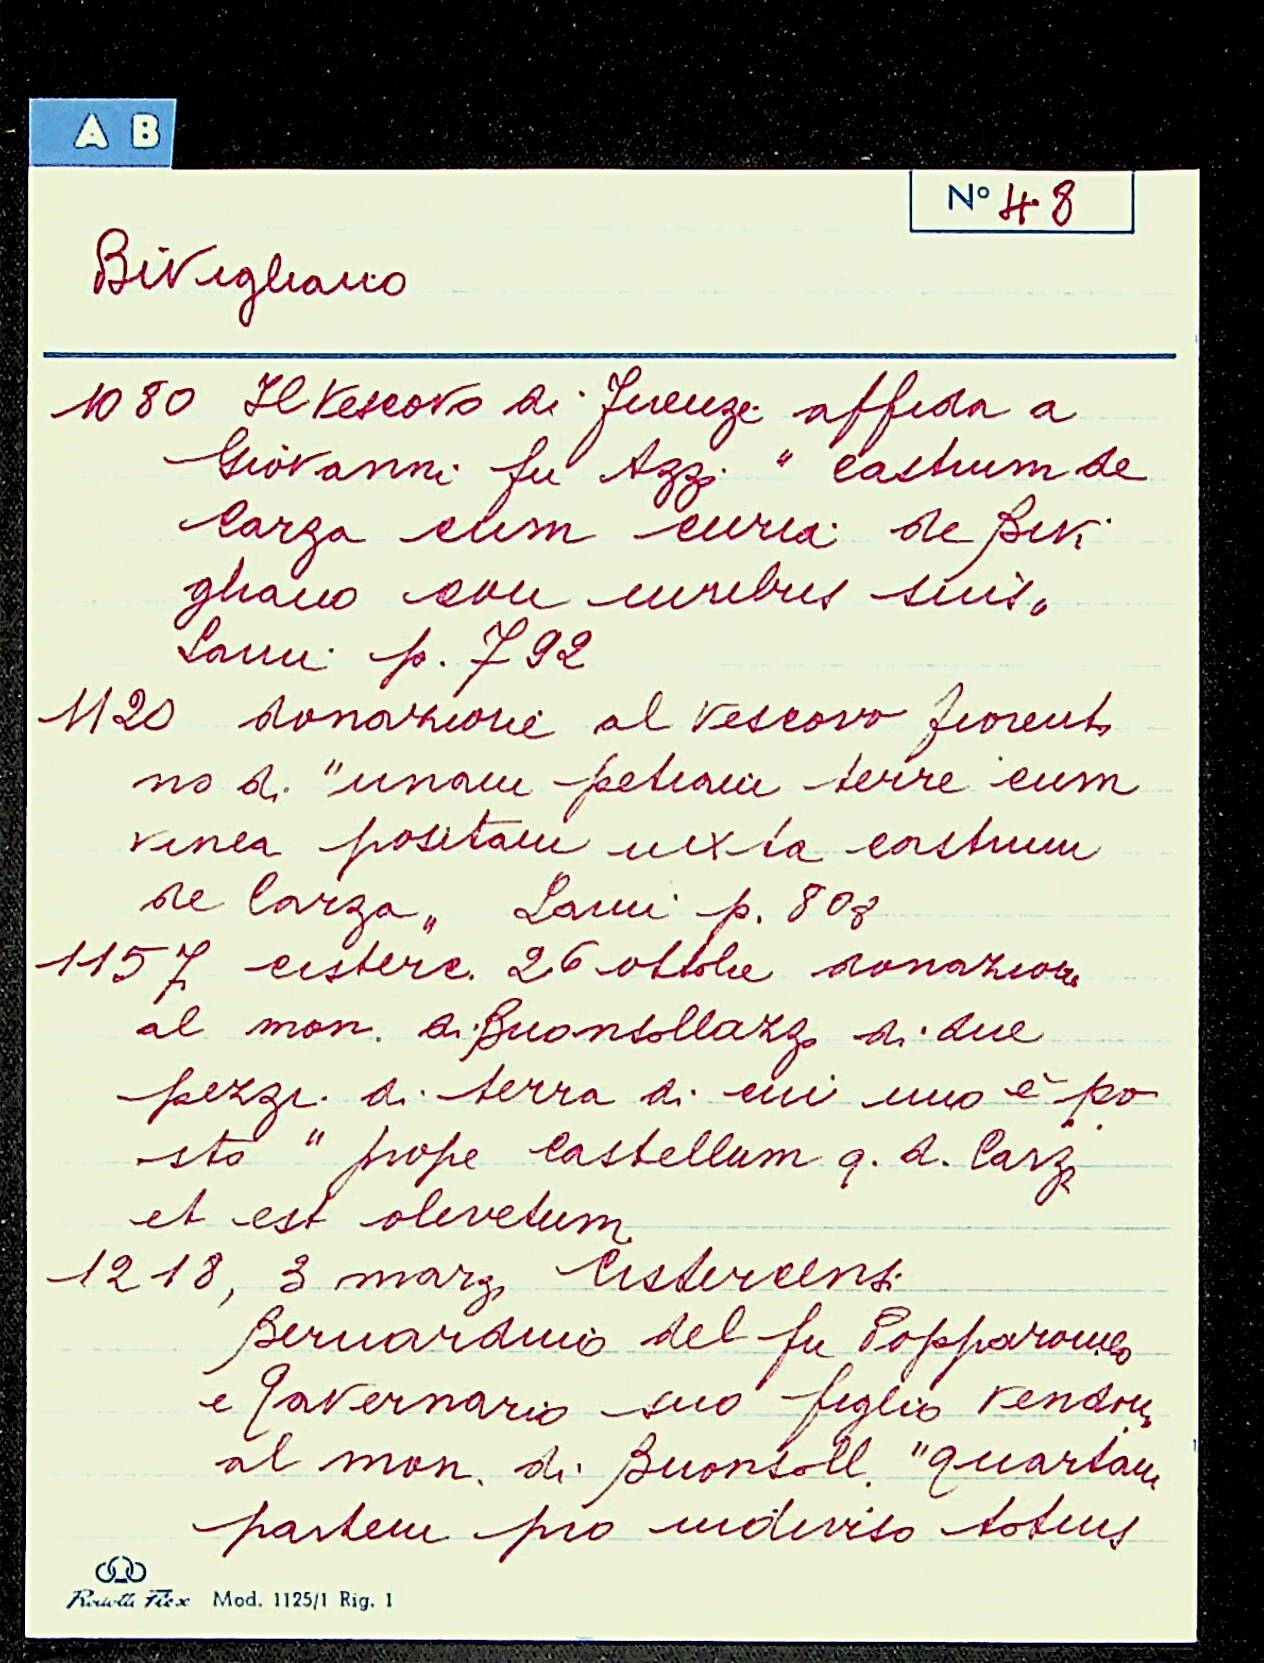 A B
Nº 48
Bivigliano
1080 Il Vescovo di Firenze affida a
Giovanni fu Azzo " castrum de
Carza cum curia de Bivi
gliano con iuribus suis"
Lami p. 792
1120 donazione al Vescovo fiorenti
no di "unam petiam terre cum
vinea positam iuxta castrum
de Carza" Lami p. 808
1157 cisterc. 26 ottobre donazione
al mon. di Buonsollazzo di due
pezzi di terra di cui uno è po
sto " prope castellum q. d. Carza
et est olivetum
1218, 3 marzo Cistercensi
Bernarduccio del fu
e suo figlio vendono
al mon. di Buonsoll. "quartam
partem pro indiviso totius
Flex Mod. 1125/1 Rig. 1